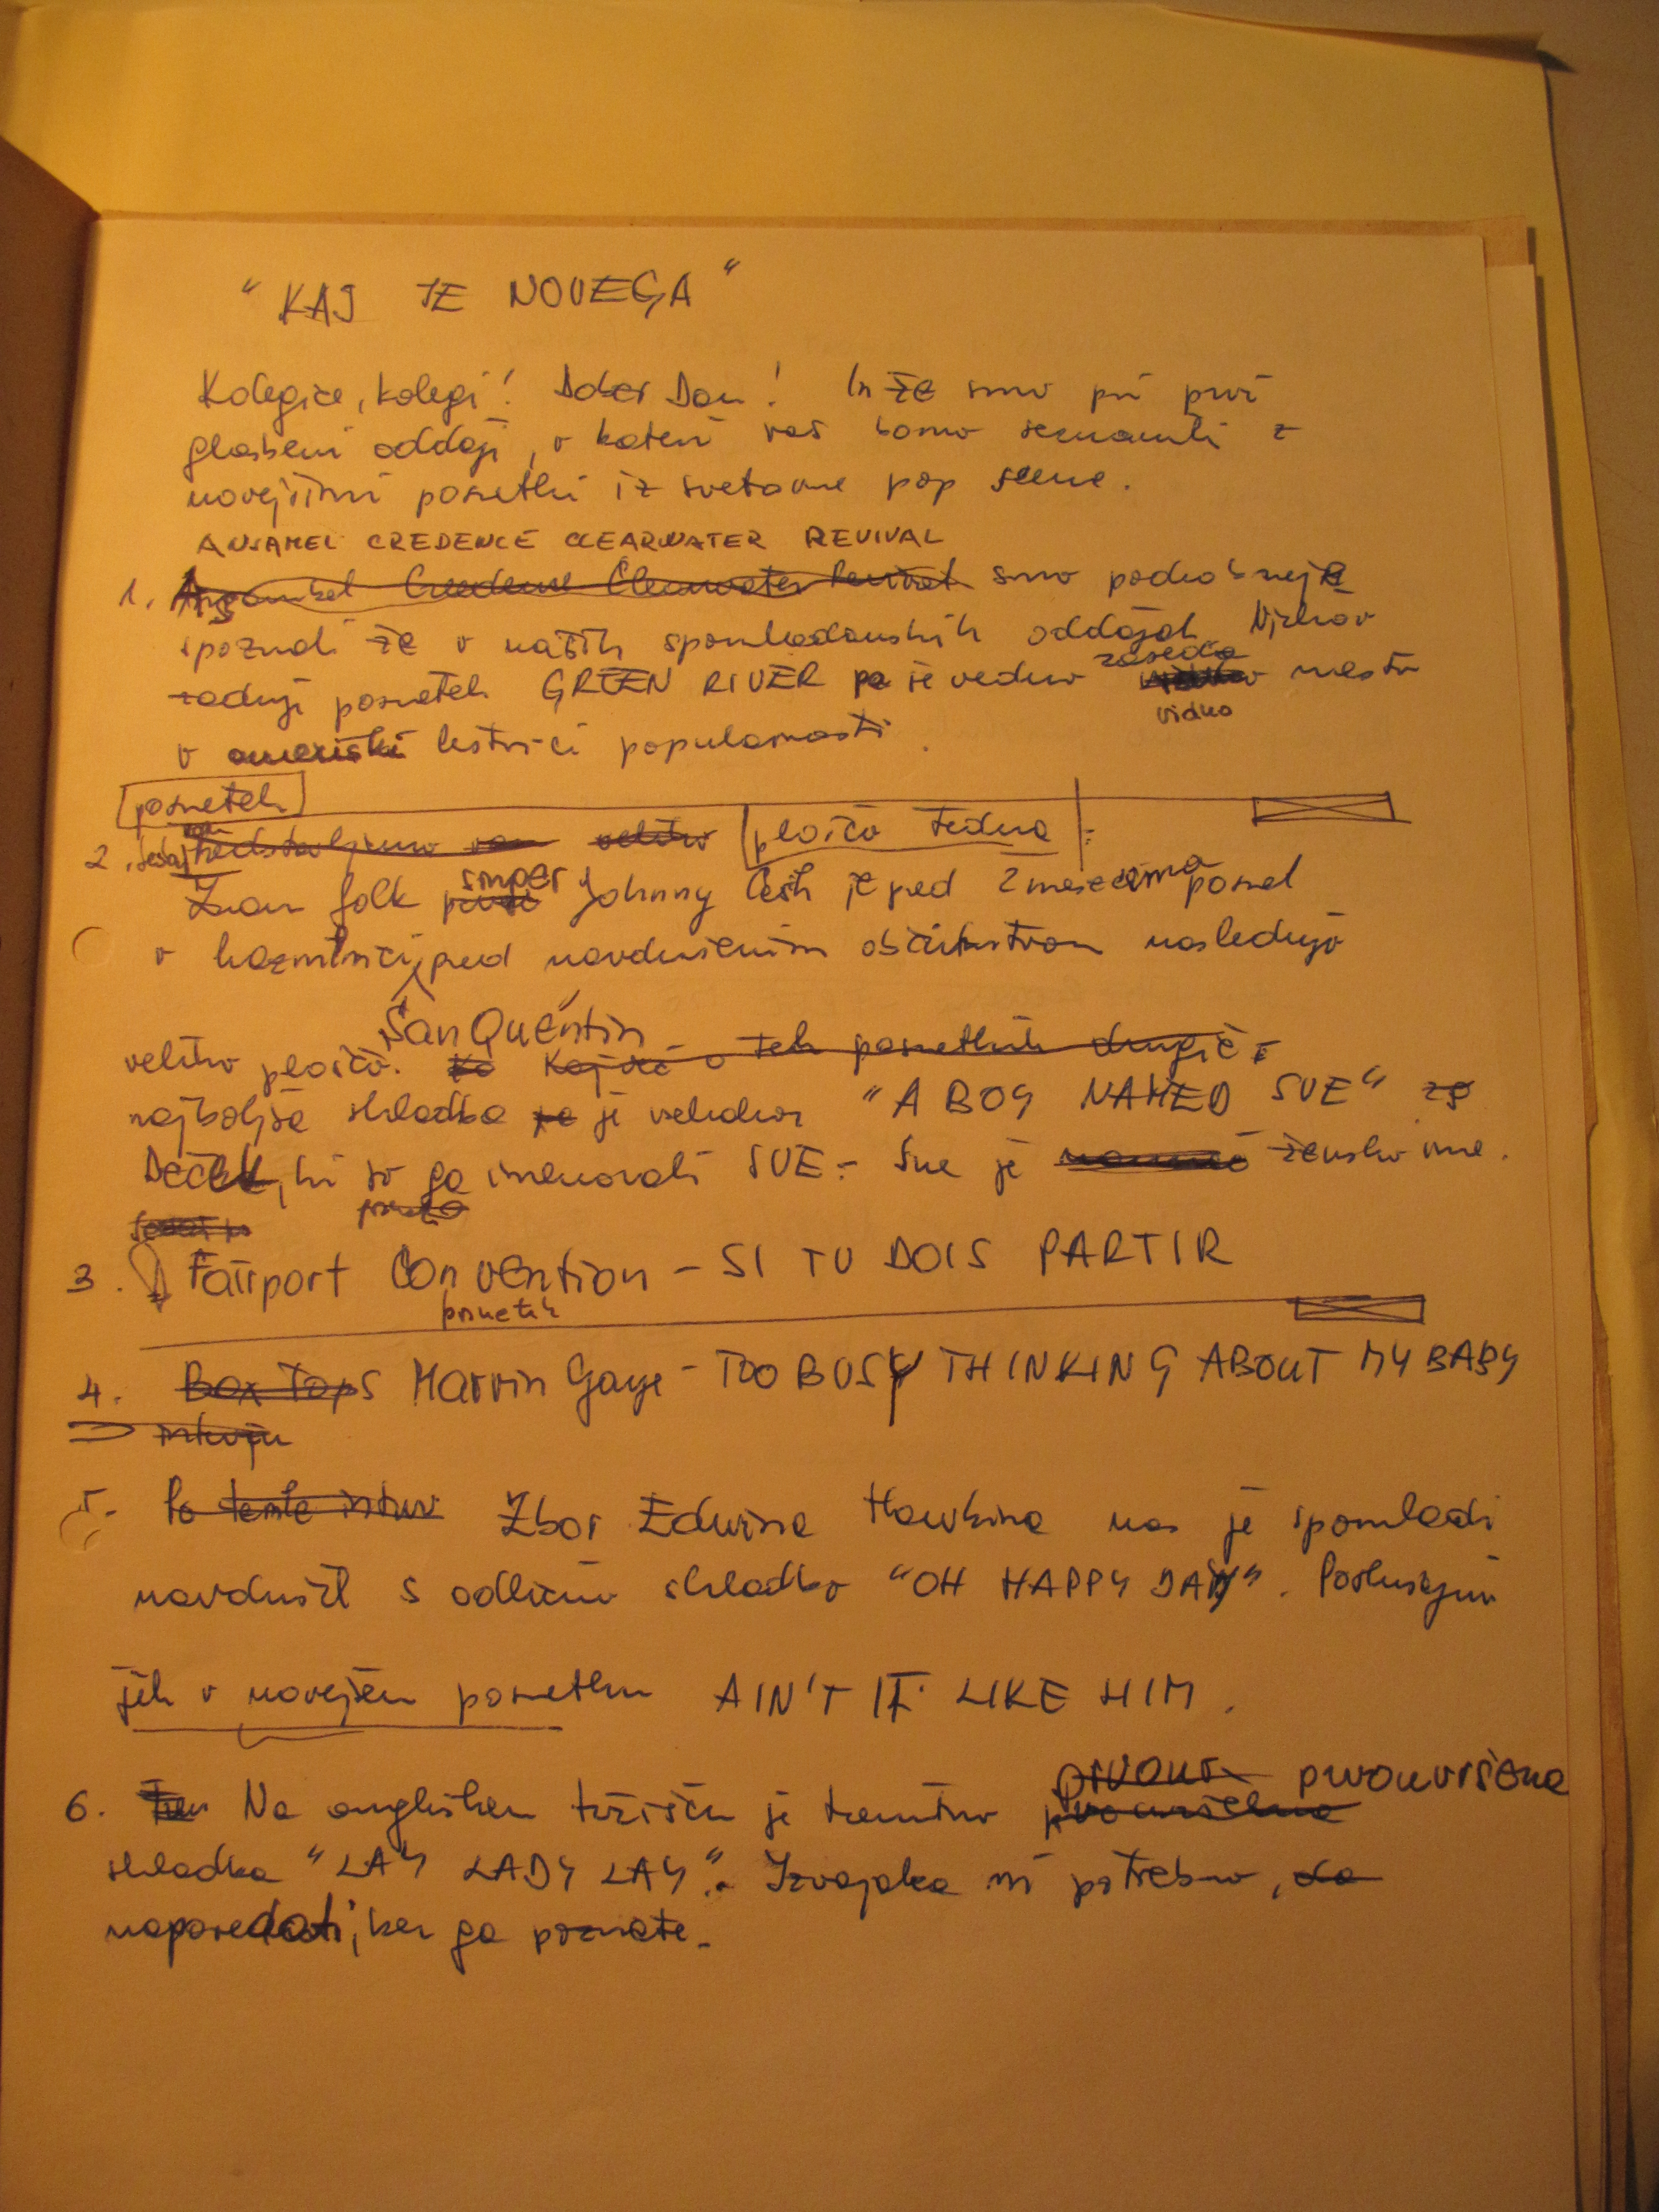 " KAJ JE NOVEGA "
Kolegice, kolegi! Dober Dan! In že smo pri prvi
glasbeni oddaji, v kateri vas bomo seznanili z
novejšimi posnetki iz svetovne pop scene.
ANSAMEL CREDENCE CLEARWATER REVIVAL
1. Ansambel Creedence Clearwater Revival smo podrobneje
spoznali že v naših spomladanskih oddajah. Njihov
zasedo
zadnji posnetek GREEN RIVER pa je vedno mesto
vidno
v ameriški lestvici popularnosti.
posnetek
2. sedaj predstavljamo vam veliko plošča tedna :
singer
Znan folk Johnny Cash je pred 2 mesecema posnel
v kaznilnici, pred navdušenim občinstvom naslednjo
"San Quentin"
veliko ploščo. Kaj več o teh posnetkih drugič.
najboljša skladba pa je vsekakor "A BOY NAMED SUE"
Deček, ki so ga imenovali SUE - Sue je žensko ime.
3. Fairport Convention - SI TU DOIS PARTIR
posnetek
4. Box Tops Marvin Gaye - TOO BUSY THINKING ABOUT MY BABY
5. Zbor Edwina Hawkinsa nas je spomladi
navdušil s odlično skladbo "OH HAPPY DAY". Poslušajmo
jih v novejšem posnetku AIN'T IT LIKE HIM.
prvouvrščena
6. Na angleškem tržišču je trenutno
skladba "LAY LADY LAY". Izvajalca ni potrebno, da
napovedati, ker ga poznate.